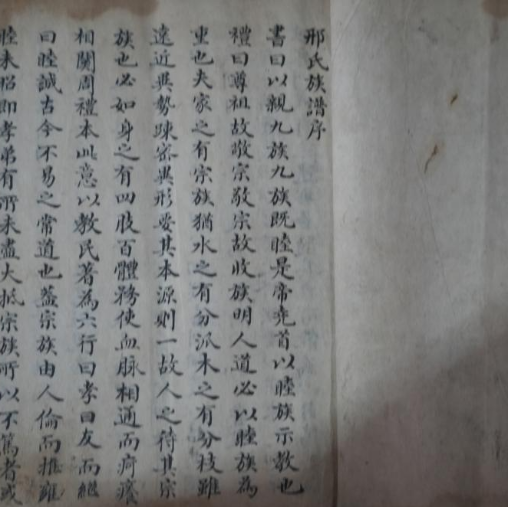 邢氏族譜序
書曰以親九族九族既睦是帝堯首以睦族示教也
禮曰尊祖故敬宗敬宗故收族明人道必以睦族為
重也夫家之有宗族猶水之有分派木之有分枝雖
遠近異勢疎密異形要其本源則一故人之待其宗
族也必如身之有四肢百體務使血脉相通而疴癢
相關周禮本此意以教民著為六行曰孝曰友而繼
曰睦誠古今不易之常道也蓋宗族由人倫而推雍
睦未昭即孝弟有所未盡大抵宗族所以不篤者或